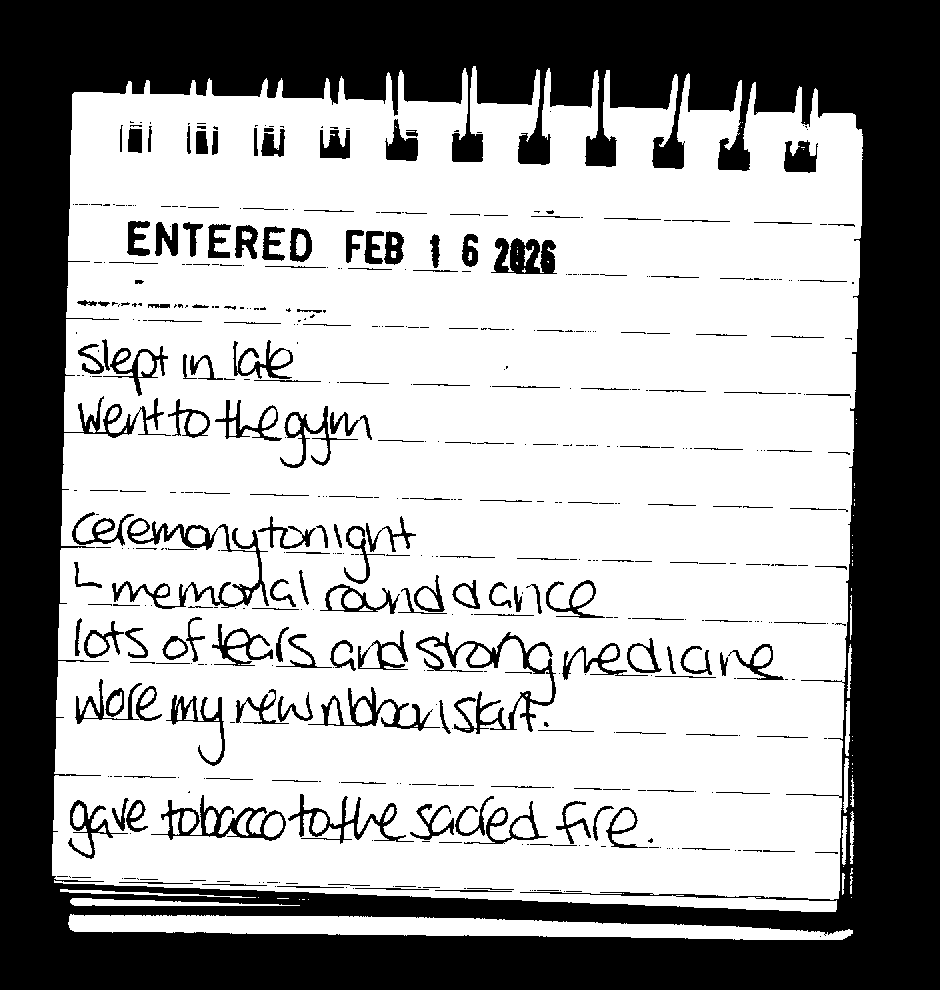 ENTERED FEB 16 2026
slept in late
went to the gym
ceremony tonight
↳ memorial round dance
lots of tears and strong medicine
wore my new ribbon skirt.
gave tobacco to the sacred fire.